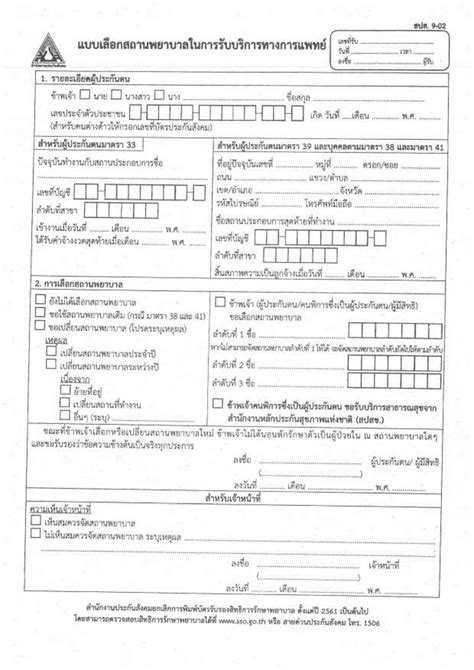 สปส. 9-02
แบบเลือกสถานพยาบาลในการรับบริการทางการแพทย์
เลขที่รับ
วันที่ เวลา
ลงชื่อ ผู้รับ
1. รายละเอียดผู้ประกันตน
ข้าพเจ้า นาย นางสาว นาง ชื่อสกุล
เลขประจำตัวประชาชน เกิด วันที่ เดือน พ.ศ.
(สำหรับคนต่างด้าวให้กรอกเลขที่บัตรประกันสังคม)
สำหรับผู้ประกันตนมาตรา 33
ปัจจุบันทำงานกับสถานประกอบการชื่อ
เลขที่บัญชี
ลำดับที่สาขา
เข้างานเมื่อวันที่ เดือน พ.ศ.
ได้รับค่าจ้างงวดสุดท้ายเมื่อเดือน พ.ศ.
สำหรับผู้ประกันตนมาตรา 39 และบุคคลตามมาตรา 38 และมาตรา 41
ที่อยู่ปัจจุบันเลขที่ หมู่ที่ ตรอก/ซอย
ถนน แขวง/ตำบล
เขต/อำเภอ จังหวัด
รหัสไปรษณีย์ โทรศัพท์มือถือ
ชื่อสถานประกอบการสุดท้ายที่ทำงาน
เลขที่บัญชี
ลำดับที่สาขา
สิ้นสภาพความเป็นลูกจ้างเมื่อวันที่ เดือน พ.ศ.
2. การเลือกสถานพยาบาล
ยังไม่ได้เลือกสถานพยาบาล
ขอใช้สถานพยาบาลเดิม (กรณี มาตรา 38 และ 41)
ขอเปลี่ยนสถานพยาบาล (โปรดระบุเหตุผล)
เหตุผล
เปลี่ยนสถานพยาบาลประจำปี
เปลี่ยนสถานพยาบาลระหว่างปี
เนื่องจาก
ย้ายที่อยู่
เปลี่ยนสถานที่ทำงาน
อื่นๆ (ระบุ)
ข้าพเจ้า (ผู้ประกันตน/คนพิการซึ่งเป็นผู้ประกันตน/ผู้มีสิทธิ)
ขอเลือกสถานพยาบาล
ลำดับที่ 1 ชื่อ
หากไม่สามารถจัดสถานพยาบาลลำดับที่ 1 ให้ได้ จะจัดสถานพยาบาลลำดับถัดไปให้ตามลำดับ
ลำดับที่ 2 ชื่อ
ลำดับที่ 3 ชื่อ
ข้าพเจ้าคนพิการซึ่งเป็นผู้ประกันตน ขอรับบริการสาธารณสุขจาก
สำนักงานหลักประกันสุขภาพแห่งชาติ (สปสช.)
ขณะที่ข้าพเจ้าเลือกหรือเปลี่ยนสถานพยาบาลใหม่ ข้าพเจ้าไม่ได้นอนพักรักษาตัวเป็นผู้ป่วยใน ณ สถานพยาบาลใดๆ
และขอรับรองว่าข้อความข้างต้นเป็นจริงทุกประการ
ลงชื่อ ผู้ประกันตน/ ผู้มีสิทธิ
ลงวันที่ เดือน พ.ศ.
สำหรับเจ้าหน้าที่
ความเห็นเจ้าหน้าที่
เห็นสมควรจัดสถานพยาบาล
ไม่เห็นสมควรจัดสถานพยาบาล ระบุเหตุผล
ลงชื่อ เจ้าหน้าที่
ลงวันที่ เดือน พ.ศ.
สำนักงานประกันสังคมยกเลิกการพิมพ์บัตรรับรองสิทธิการรักษาพยาบาล ตั้งแต่ปี 2561 เป็นต้นไป
โดยสามารถตรวจสอบสิทธิการรักษาพยาบาลได้ที่ www.sso.go.th หรือ สายด่วนประกันสังคม โทร. 1506